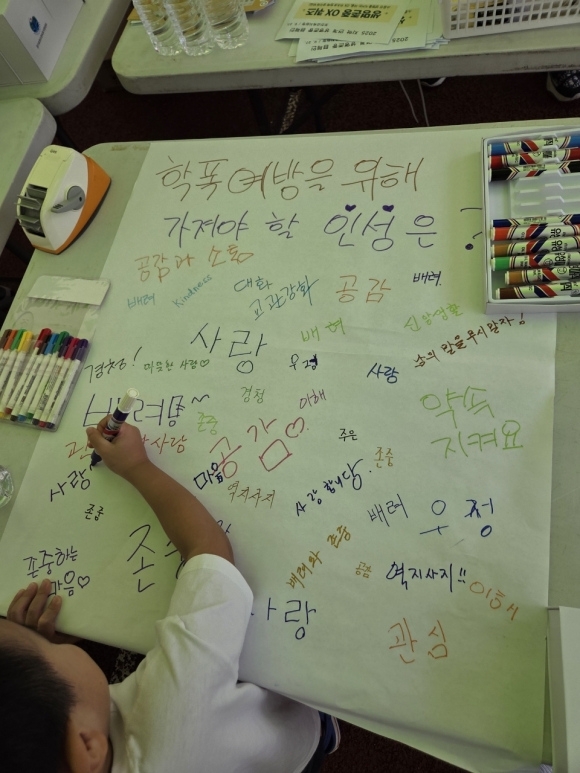 생명존중 OX 퀴즈
학폭 예방을 위해
가져야 할 인성은 ?
공감과 소통
배려
Kindness
대화
교관강화
공감
배려
사랑
배려
신앙생활
남의 말을 무시말자!
경청!
따뜻한 사랑♡
우정
사랑
배려명~
존중
경청
이해
약속
지켜요
공감♡
주은
존중
사랑
마음
역지사지
사랑합니당
존중
배려
우정
존중하는
마음♡
배려와 존중
공감
역지사지!!
이해
사랑
관심